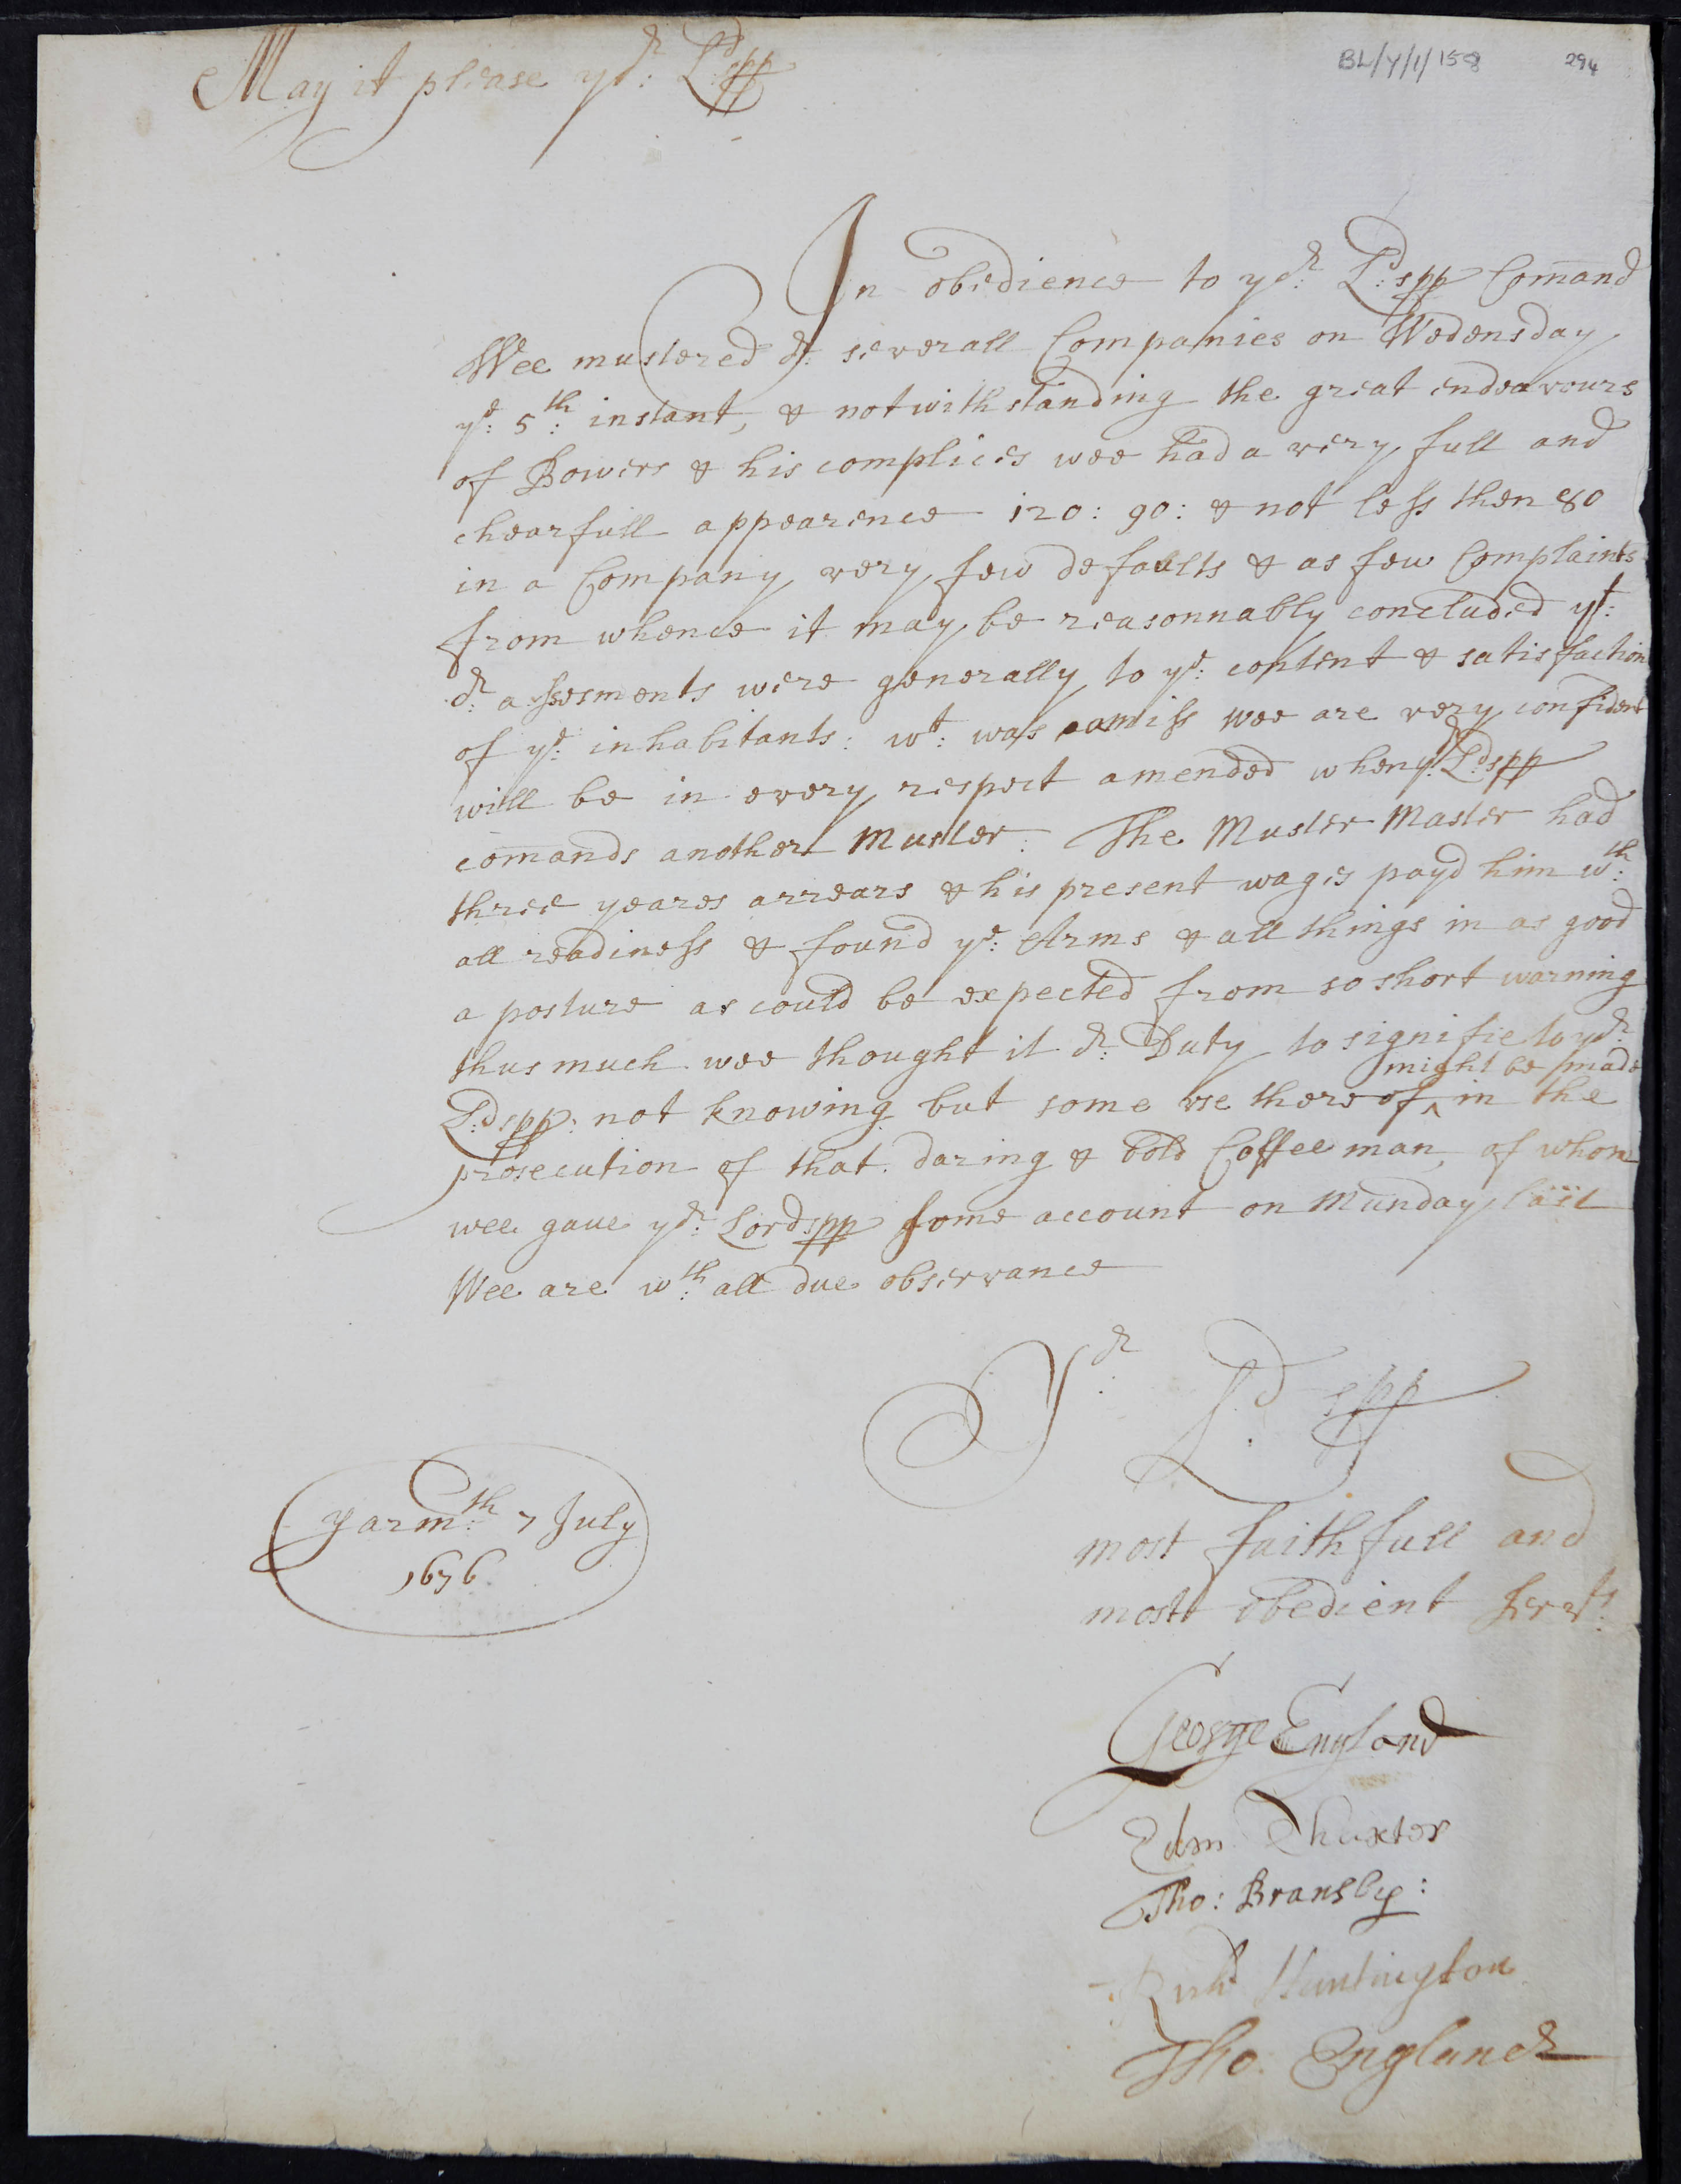 BL/Y/1/158
294
May it please yor: Ldspp
In obedience to yor: Ld:spp Comand
Wee mustered or: severall Companies on Wedensday
ye: 5th: instant, & notwithstanding the great endeavours
of Bowers & his complices wee had a very full and
chearfull appearence 120: 90: & not less then 80
in a Company very few defaults & as few Complaints
from whence it may be reasonnably concluded yt:
or: assesments were generally to ye: content & satisfaction
of ye: inhabitants: wt: was amiss wee are very confident
will be in every respect amended when yr: Ldspp
comands another Muster: The Muster Master had
three yeares arrears & his present wages payd him wth:
all readiness & found ye: Arms & all things in as good
a posture as could be expected from so short warning
thus much wee thought it or: Duty to signifie to yor:
might be made
L:dspp: not knowing but some vse thereof ^ in the
prosecution of that daring & bold Coffee man, of whom
wee gaue yor: Lordspp some account on Munday last
Wee are wth: all due observance
Yor: L:dspp
most faithfull and
most obedient servts:
Yarmth: 7 July
1676
George England
Edm Thuxter
Tho: Bransby:
Richd Huntington
Tho. England